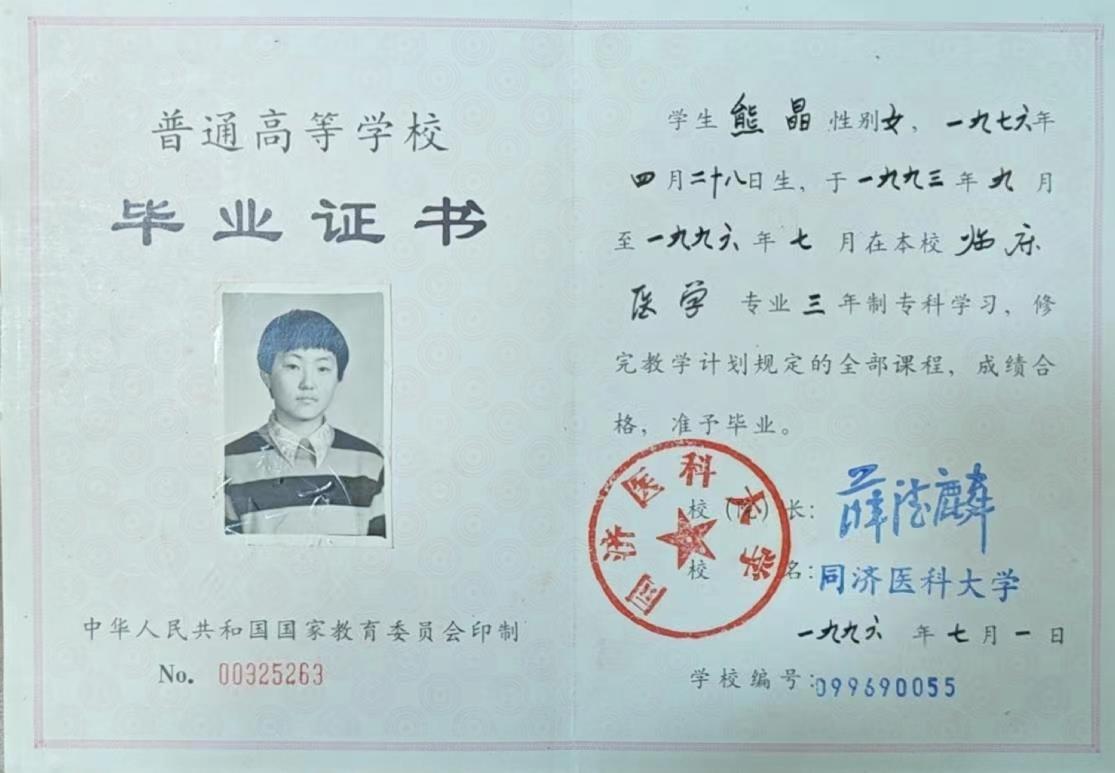 普通高等学校
毕业证书
中华人民共和国国家教育委员会印制
No. 00325263
学生熊晶性别女，一九七六年
四月二十八日生，于一九九三年九月
至一九九六年七月在本校临床
医学专业三年制专科学习，修
完教学计划规定的全部课程，成绩合
格，准予毕业。
校（院）长：薛德麟
校名：同济医科大学
同济医科大学
一九九六年七月一日
学校编号：099690055